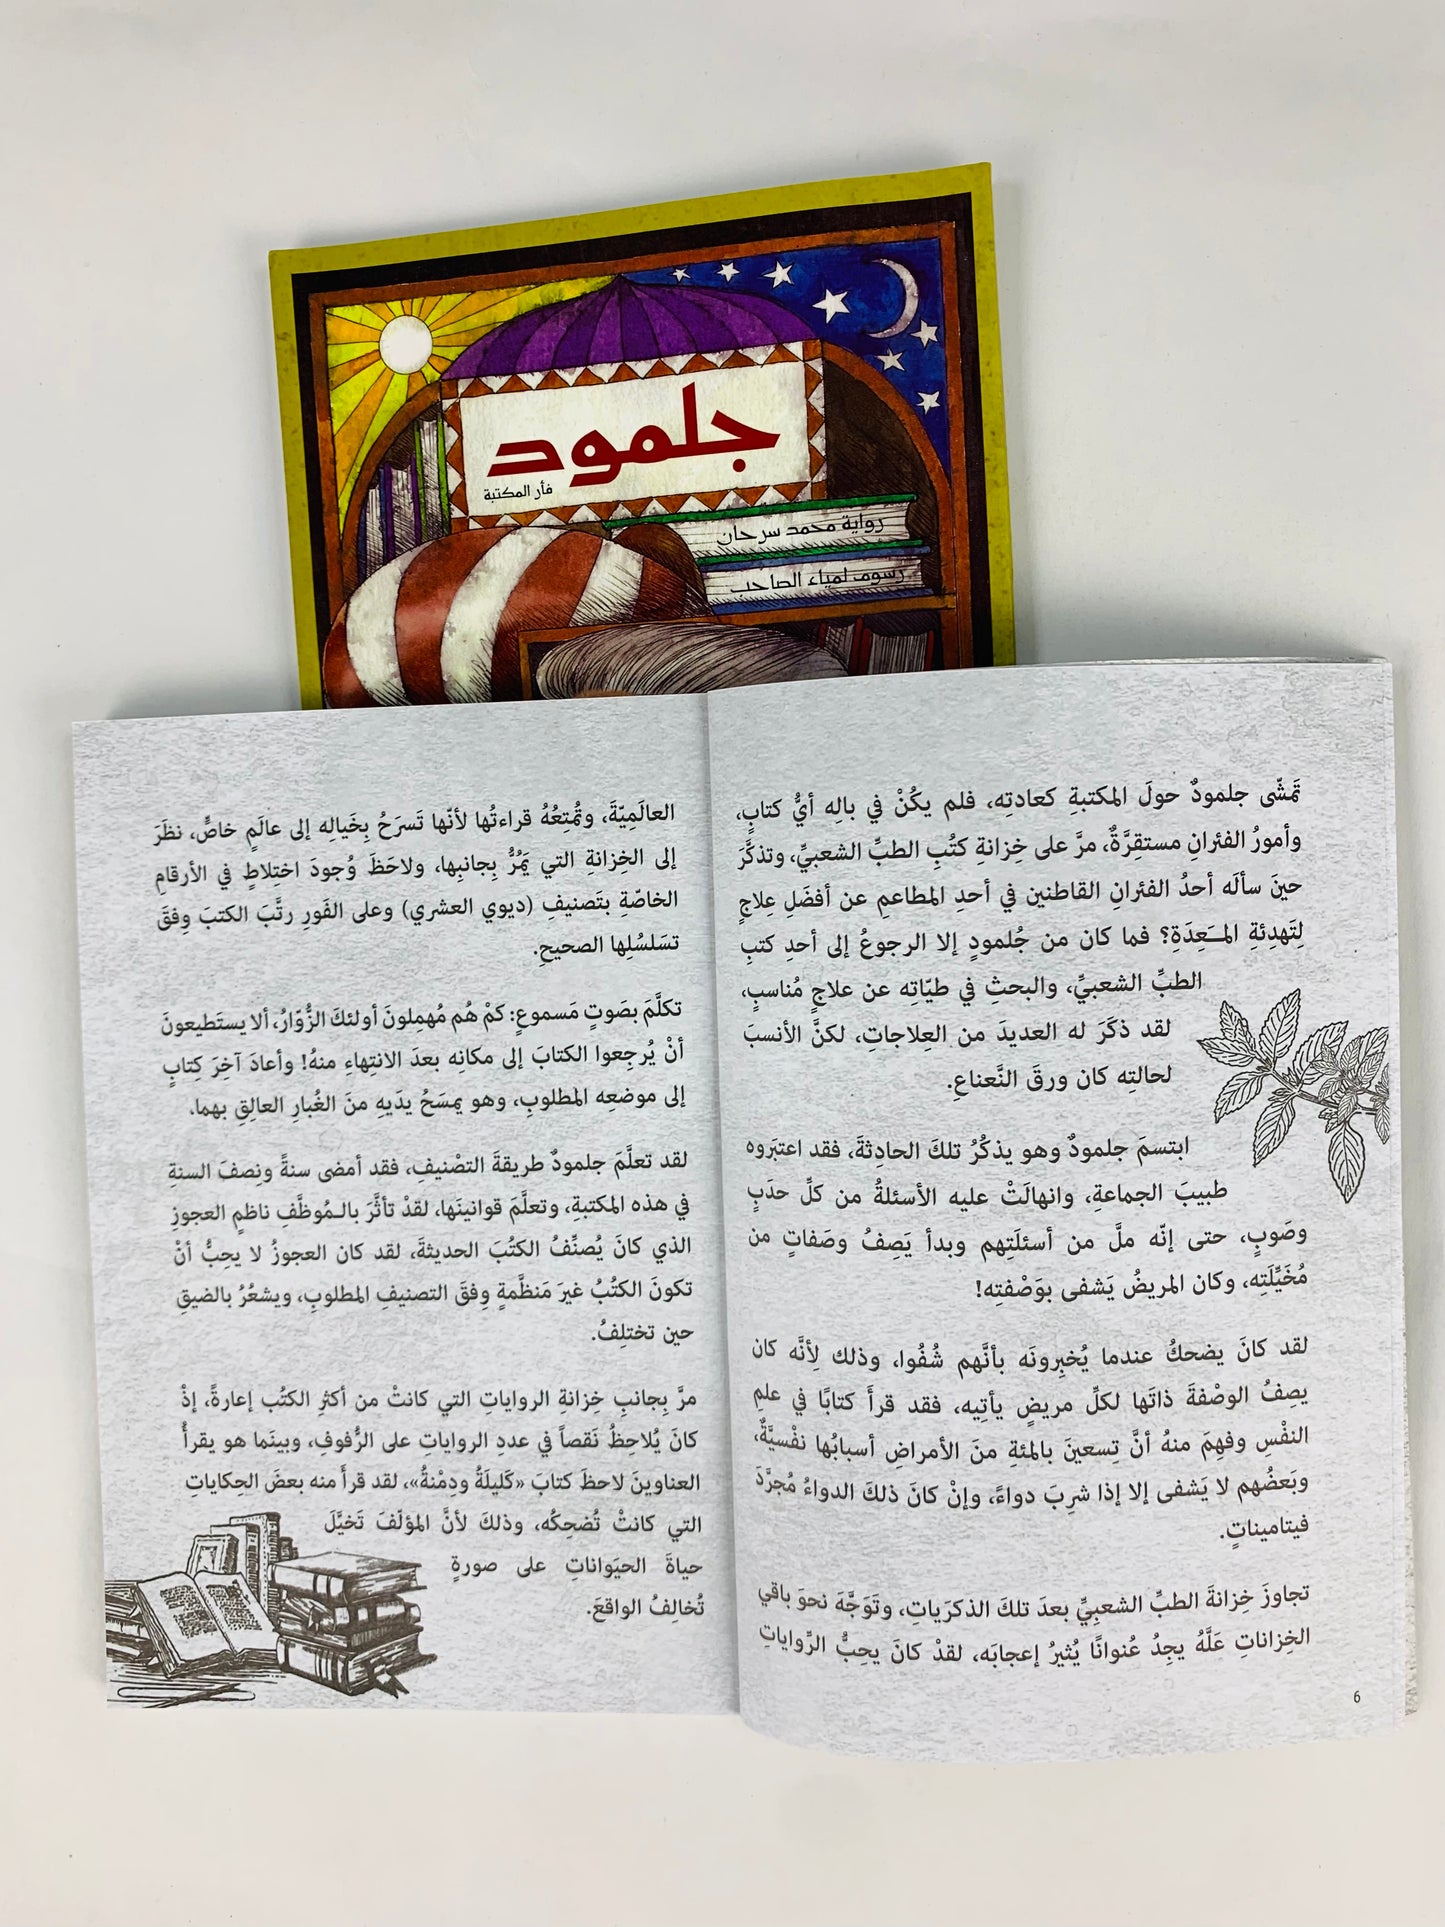 جلمود
فأر المكتبة
رواية محمد سرحان
رسوم لمياء الصاحب
تَمشّى جلمودٌ حولَ المكتبةِ كعادتِه، فلم يكُنْ في بالِه أيُّ كتابٍ،
وأمورُ الفئرانِ مستقِرَّةٌ، مرَّ على خِزانةِ كتُبِ الطبِّ الشعبيِّ، وتذكَّرَ
حينَ سألَه أحدُ الفئرانِ القاطنين في أحدِ المطاعمِ عن أفضَلِ عِلاجٍ
لِتَهدِئةِ المـَـعِدَةِ؟ فما كان من جُلمودٍ إلا الرجوعُ إلى أحدِ كتبِ
الطبِّ الشعبيِّ، والبحثِ في طيّاتِه عن علاجٍ مُناسبٍ،
لقد ذكَرَ له العديدَ من العِلاجاتِ، لكنَّ الأنسبَ
لحالتِه كان ورقَ النَّعناعِ.
ابتسمَ جلمودٌ وهو يذكُرُ تلكَ الحادِثةَ، فقد اعتبَروه
طبيبَ الجماعةِ، وانهالَتْ عليه الأسئلةُ من كلِّ حدَبٍ
وصَوبٍ، حتى إنّه ملَّ من أسئلَتِهم وبدأ يَصِفُ وصَفاتٍ من
مُخَيِّلَتِه، وكان المريضُ يَشفى بوَصْفتِه!
لقد كانَ يضحكُ عندما يُخبِرونَه بأنَّهم شُفُوا، وذلك لِأنَّه كان
يصِفُ الوصْفةَ ذاتَها لكلِّ مريضٍ يأتِيه، فقد قرأَ كتابًا في علمِ
النفْسِ وفهِمَ منهُ أنَّ تِسعينَ بالمئةِ منَ الأمراضِ أسبابُها نفْسيَّةٌ،
وبَعضُهم لا يَشفى إلا إذا شرِبَ دواءً، وإنْ كانَ ذلكَ الدواءُ مُجرَّدَ
فيتاميناتٍ.
تجاوزَ خِزانةَ الطبِّ الشعبِيِّ بعدَ تلكَ الذكرَياتِ، وتَوَجَّهَ نحوَ باقي
الخِزاناتِ عَلَّهُ يجِدُ عُنوانًا يُثيرُ إعجابَه، لقدْ كانَ يحِبُّ الرِّواياتِ
6
العالَمِيّةَ، وتُمتِعُهُ قراءتُها لأنّها تَسرَحُ بِخَيالِه إلى عالَمٍ خاصٍّ، نظَرَ
إلى الخِزانةِ التي يَمُرُّ بِجانبِها، ولاحَظَ وُجودَ اختِلاطٍ في الأرقامِ
الخاصّةِ بتَصنيفِ (ديوي العشري) وعلى الفَورِ رتَّبَ الكتبَ وِفقَ
تسَلسُلِها الصحيحِ.
تكلَّمَ بصَوتٍ مَسموعٍ: كمْ هُم مُهمِلونَ أولئكَ الزُّوّارُ، ألا يستَطيعونَ
أنْ يُرجِعوا الكتابَ إلى مكانِه بعدَ الانتِهاءِ منهُ! وأعادَ آخِرَ كِتابٍ
إلى موضعِه المطلوبِ، وهو يمسَحُ يدَيهِ منَ الغُبارِ العالِقِ بهما.
لقد تعلَّمَ جلمودٌ طريقةَ التصْنيفِ، فقد أمضى سنةً ونِصفَ السنةِ
في هذه المكتبةِ، وتعلَّمَ قوانينَها، لقدْ تأثَّرَ بالـمُوظَّفِ ناظمٍ العجوزِ
الذي كانَ يُصنِّفُ الكتُبَ الحديثةَ، لقد كان العجوزُ لا يحِبُّ أنْ
تكونَ الكتُبُ غيرَ مَنظَّمةٍ وِفقَ التصنيفِ المطلوبِ، ويشعُرُ بالضيقِ
حين تختلِفُ.
مرَّ بِجانبِ خِزانةِ الرواياتِ التي كانتْ من أكثرِ الكتُب إعارةً، إذْ
كانَ يُلاحِظُ نَقصاً في عددِ الرواياتِ على الرُّفوفِ، وبينَما هو يقرأُ
العناوينَ لاحظَ كتابَ «كَليلَةُ ودِمْنةُ»، لقد قرأَ منه بعضَ الحِكاياتِ
التي كانتْ تُضحِكُه، وذلكَ لأنَّ المؤلّفَ تَخيَّلَ
حياةَ الحيَواناتِ على صورةٍ
تُخالِفُ الواقعَ.